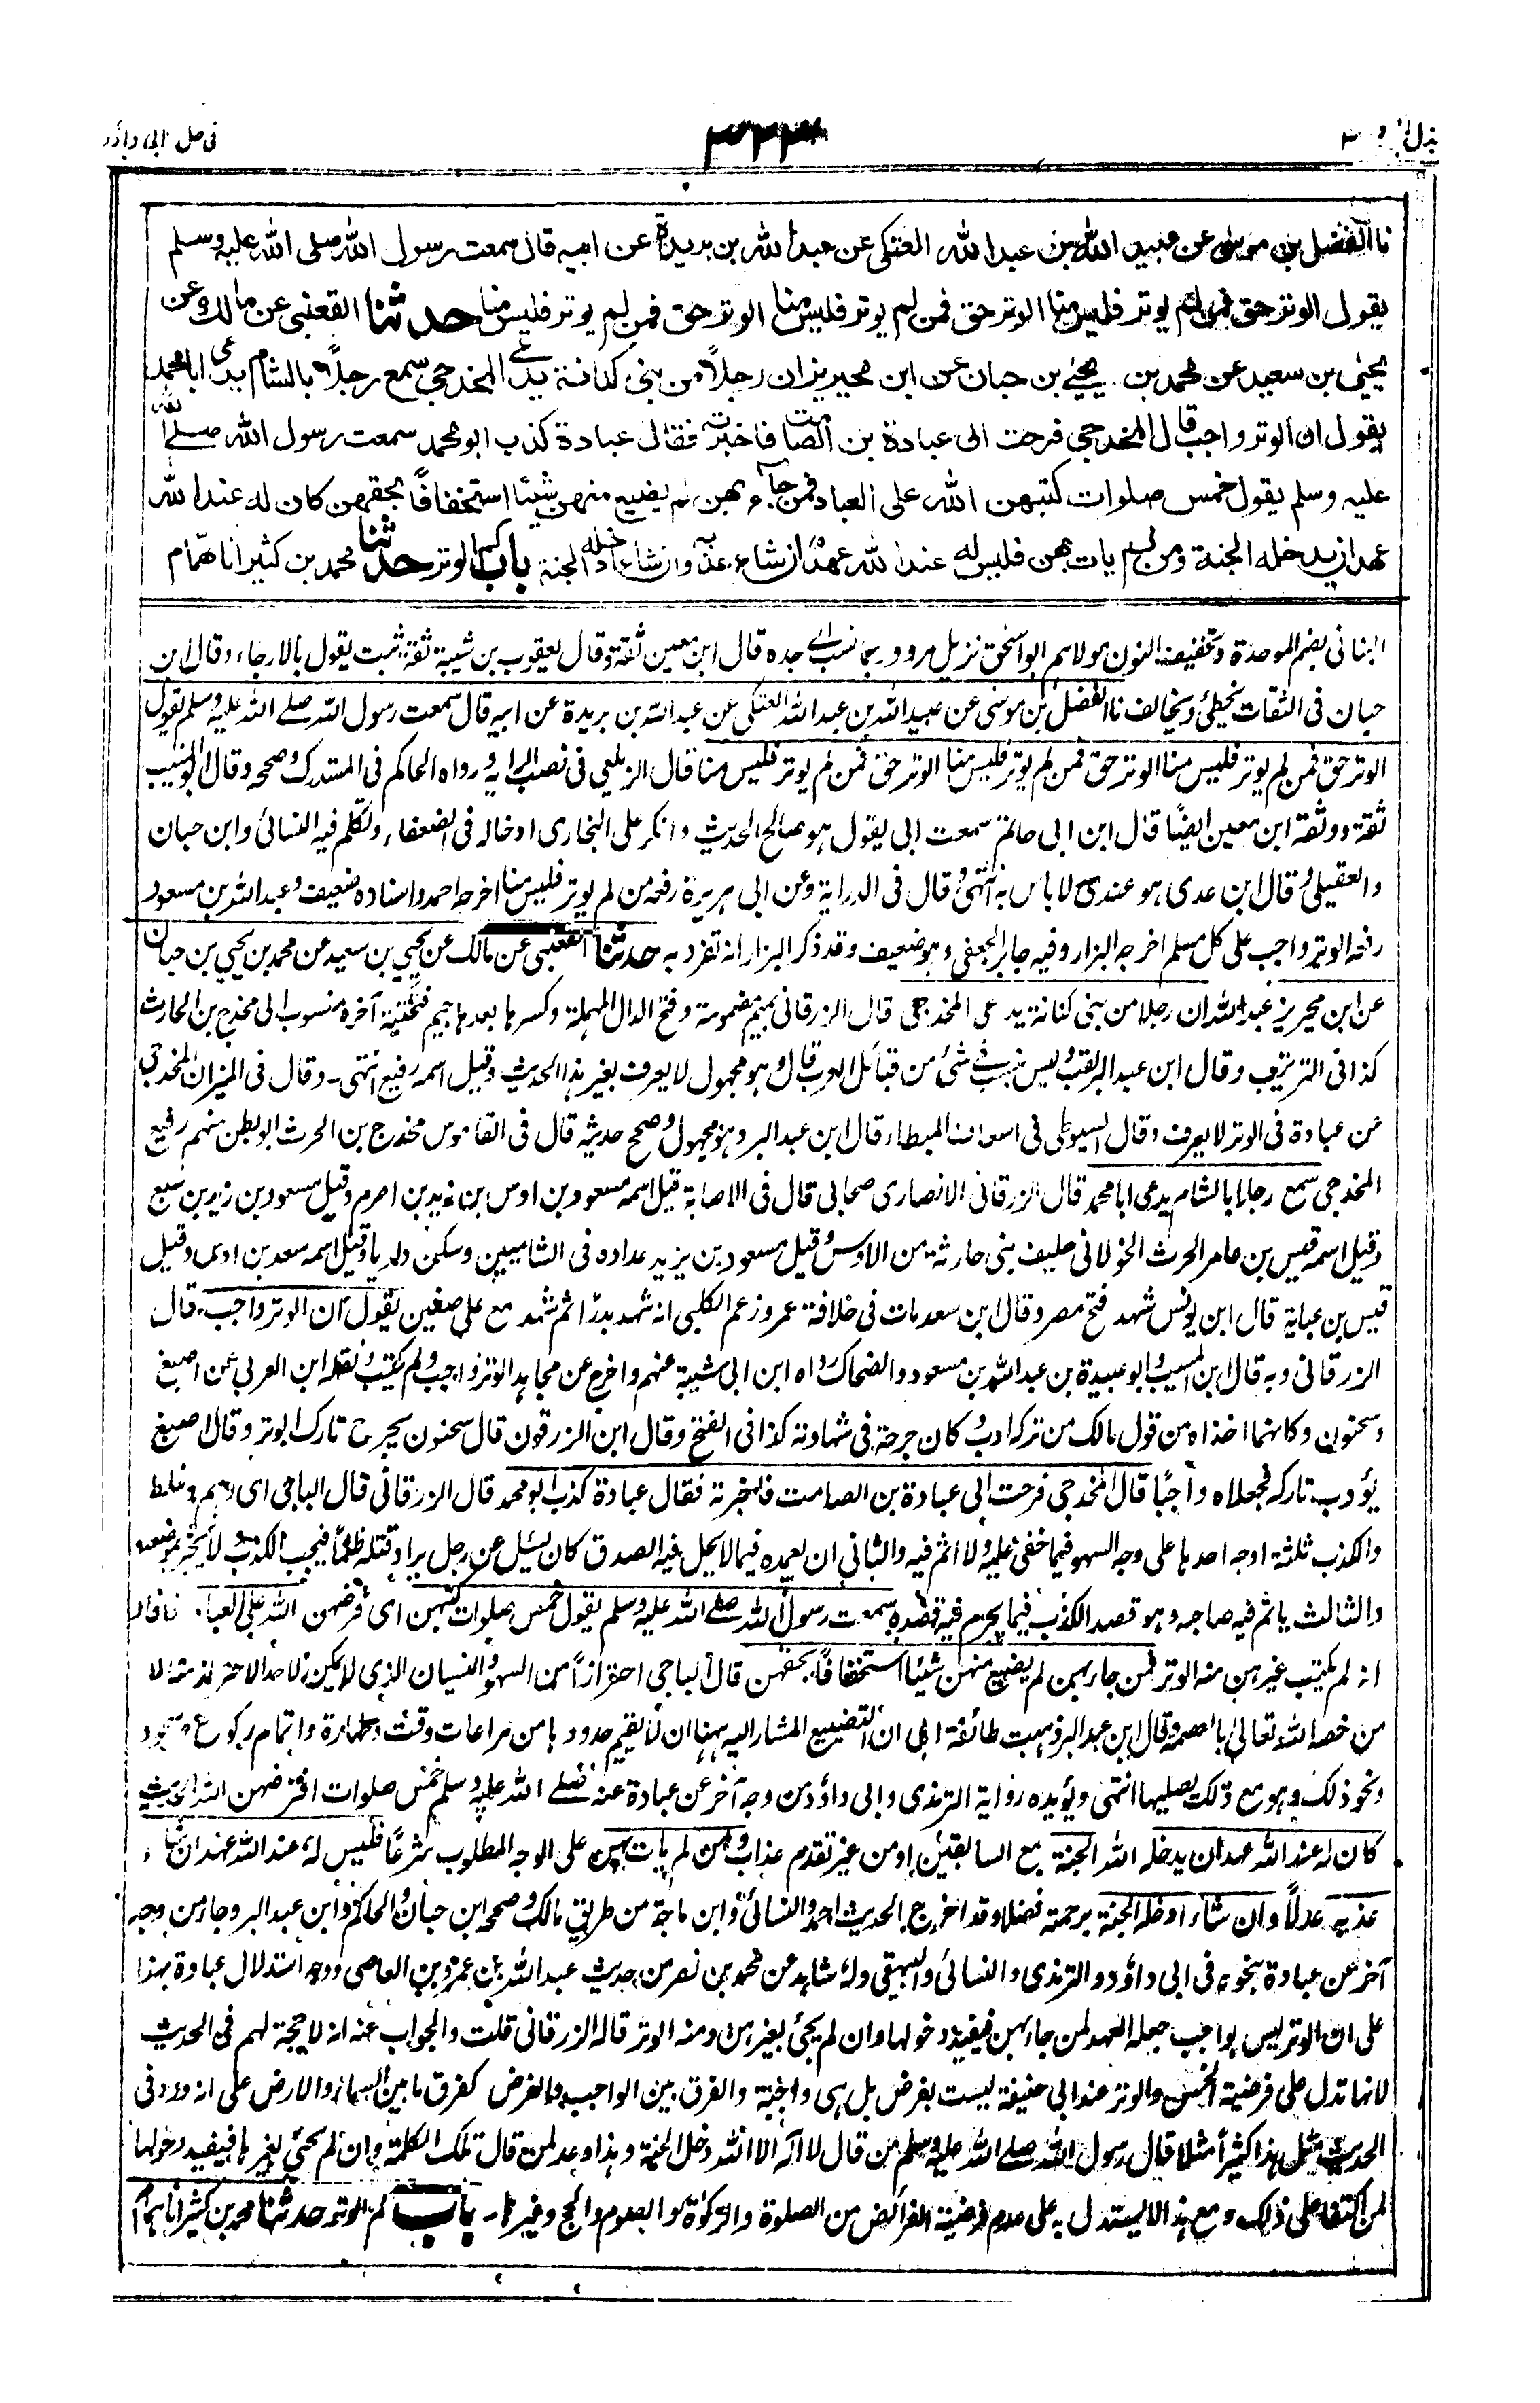 ٣٢٣
نا الفضل بن موسى عن عبيد الله بن عبد الله العتكى عن عبد الله بن بريدة عن ابيه قال سمعت رسول الله صلى الله عليه وسلم
يقول الوتر حق فمن لم يوتر فليس منا الوتر حق فمن لم يوتر فليس منا الوتر حق فمن لم يوتر فليس منا حدثنا القعنبى عن مالك عن
يحيى بن سعيد عن محمد بن يحيى بن حبان عن ابن محيريز ان رجلاً من بنى كنانة يدعى المخدجى سمع رجلاً بالشام يدعى ابا محمد
يقول ان الوتر واجب قال المخدجى فرحت الى عبادة بن الصامت فاخبرته فقال عبادة كذب ابو محمد سمعت رسول الله صلى الله
عليه وسلم يقول خمس صلوات كتبهن الله على العباد فمن جاء بهن لم يضيع منهن شيئا استخفافاً بحقهن كان له عند الله
عهد ان يدخله الجنة ومن لم يات بهن فليس له عند الله عهد ان شاء عذبه وان شاء ادخله الجنة باب كم الوتر حدثنا محمد بن كثير انا همام
البنانى بضم الموحدة وتخفيف النون مولاهم ابو اسحق نزيل مرو ربما نسب الى جده قال ابن معين ثقة وقال يعقوب بن شيبة ثقة ثبت يقول بالارجاء وقال ابن
حبان فى الثقات يخطئ ويخالف نا الفضل بن موسى عن عبيد الله بن عبد الله العتكى عن عبد الله بن بريدة عن ابيه قال سمعت رسول الله صلى الله عليه وسلم يقول
الوتر حق فمن لم يوتر فليس منا الوتر حق فمن لم يوتر فليس منا الوتر حق فمن لم يوتر فليس منا قال الزيلعى فى نصب الراية ورواه الحاكم فى المستدرك وصححه وقال ابو المنيب
ثقة ووثقه ابن معين ايضاً قال ابن ابى حاتم سمعت ابى يقول هو صالح الحديث وانكر على البخارى ادخاله فى الضعفاء وتكلم فيه النسائى وابن حبان
والعقيلى وقال ابن عدى هو عندى لا باس به انتهى وقال فى الدراية وعن ابى هريرة رفعه من لم يوتر فليس منا اخرجه احمد واسناده ضعيف وعبد الله بن مسعود
رفعه الوتر واجب على كل مسلم اخرجه البزار وفيه جابر الجعفى وهو ضعيف وقد ذكر البزار انه تفرد به حدثنا القعنبى عن مالك عن يحيى بن سعيد عن محمد بن يحيى بن حبان
عن ابن محيريز عبد الله ان رجلا من بنى كنانة يدعى المخدجى قال الزرقانى بميم مضمومة وفتح الدال المهملة وكسرها بعدها جيم فتحتية آخره منسوب الى مخدج بن الحارث
كذا فى الترتيب وقال ابن عبد البر لقب وليس بنسب فى شئ من قبائل العرب قال وهو مجهول لا يعرف بغير هذا الحديث وقيل اسمه رفيع انتهى - وقال فى الميزان المخدجى
عن عبادة فى الوتر لا يعرف وقال السيوطى فى اسعاف المبطاء قال ابن عبد البر وهو مجهول وصحح حديثه قال فى القاموس مخدج بن الحرث ابو بطن منهم رفيع
المخدجى سمع رجلا بالشام يدعى ابا محمد قال الزرقانى الانصارى صحابى قال فى الاصابة قيل اسمه مسعود بن اوس بن زيد بن اصرم وقيل مسعود بن زيد بن سبيع
وقيل اسمه قيس بن عامر الحرث الخولانى حليف بنى حارثة من الاوس وقيل مسعود بن يزيد عداده فى الشاميين وسكن داريا وقيل اسمه سعد بن اوس وقيل
قيس بن عباية قال ابن يونس شهد فتح مصر وقال ابن سعد مات فى خلافة عمر وزعم الكلبى انه شهد بدرا ثم شهد مع على صفين يقول ان الوتر واجب قال
الزرقانى وبه قال ابن المسيب وابو عبيدة بن عبد الله بن مسعود والضحاك رواه ابن ابى شيبة عنهم واخرج عن مجاهد الوتر واجب ولم يكتب ونقله ابن العربى عن اصبغ
وسحنون وكانهما اخذاه من قول مالك من تركه ادب وكان جرحة فى شهادته كذا فى الفتح وقال ابن الزرقون قال سحنون يجرح تارك الوتر وقال اصبغ
يؤدب تاركه فجعلاه واجبًا قال المخدجى فرحت الى عبادة بن الصامت فاخبرته فقال عبادة كذب ابو محمد قال الزرقانى قال الباجى اى وهم وغلط
والكذب ثلثة اوجه احدها على وجه السهو فيما خفى عليه ولا اثم فيه والثانى ان يعمده فيما لا يحل فيه الصدق كان يسئل عن رجل يراد قتله ظلما فيجب الكذب ولا يخبر بموضعه
والثالث ياثم فيه صاحبه وهو قصد الكذب فيما يحرم فيه قصده سمعت رسول الله صلى الله عليه وسلم يقول خمس صلوات كتبهن اى فرضهن الله على العباد
انه لم يكتب غيرهن منه الوتر فمن جاء بهن لم يضيع منهن شيئا استخفافًا بحقهن قال الباجى احترازاً من السهو والنسيان الذى لا يمكن لاحد الاحتراز منه الا
من خصه الله تعالى بالعصمة وقال ابن عبد البر ذهبت طائفة الى ان التضييع المشار اليه ههنا ان لا يقيم حدودها من مراعات وقت وطهارة واتمام ركوع وسجود
ونحو ذلك وهو مع ذلك يصليها انتهى ويؤيده رواية الترمذى وابى داؤد من وجه آخر عن عبادة عنه صلى الله عليه وسلم خمس صلوات افترضهن الله الحديث
كان له عند الله عهد ان يدخله الله الجنة مع السابقين او من غير تقدم عذاب ومن لم يات بهن على الوجه المطلوب شرعًا فليس له عند الله عهد ان شاء
عذبه عدلًا وان شاء ادخله الجنة برحمته فضلا وقد اخرج الحديث احمد والنسائى وابن ماجة من طريق مالك وصححه ابن حبان والحاكم وابن عبد البر وجاء من وجه
آخر عن عبادة بنحوه فى ابى داؤد والترمذى والنسائى والبيهقى وله شاهد عن محمد بن نصر من حديث عبد الله بن عمرو بن العاصى ووجه استدلال عبادة بهذا
على ان الوتر ليس بواجب جعله العهد لمن جاء بهن فيفيد دخولها وان لم يجئ بغيرهن ومنه الوتر قاله الزرقانى قلت والجواب عنه انه لا حجة لهم فى الحديث
لانها تدل على فرضية الخمس والوتر عند ابى حنيفة ليست بفرض بل هى واجبة والفرق بين الواجب والفرض كفرق ما بين السماء والارض على انه ورد فى
الحديث مثل هذا كثيرا مثلا قال رسول الله صلى الله عليه وسلم من قال لا اله الا الله دخل الجنة وهذا وعد لمن قال تلك الكلمة وان لم يجئ بغيرها فيفيد دخولها
لمن اكتفا على ذلك ومع هذا لا يستدل به على عدم فرضية الفرائض من الصلوة والزكوة والصوم والحج وغيرها - باب كم الوتر حدثنا محمد بن كثير انا همام